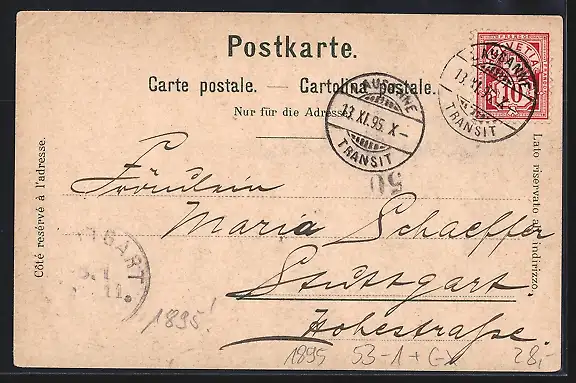 Postkarte.
Carte postale. — Cartolina postale.
Nur für die Adresse.
LAUSANNE
13.XI.95.X—
TRANSIT
LAUSANNE
13.XI.95.X—
TRANSIT
FRANCO
10
50
Côté resérvé à l'adresse.
Lato riservato all' indirizzo.
Fräulein
Maria Schaeffer
Stuttgart.
Hohestraße.
1895!
1895 53-1+G 28,-